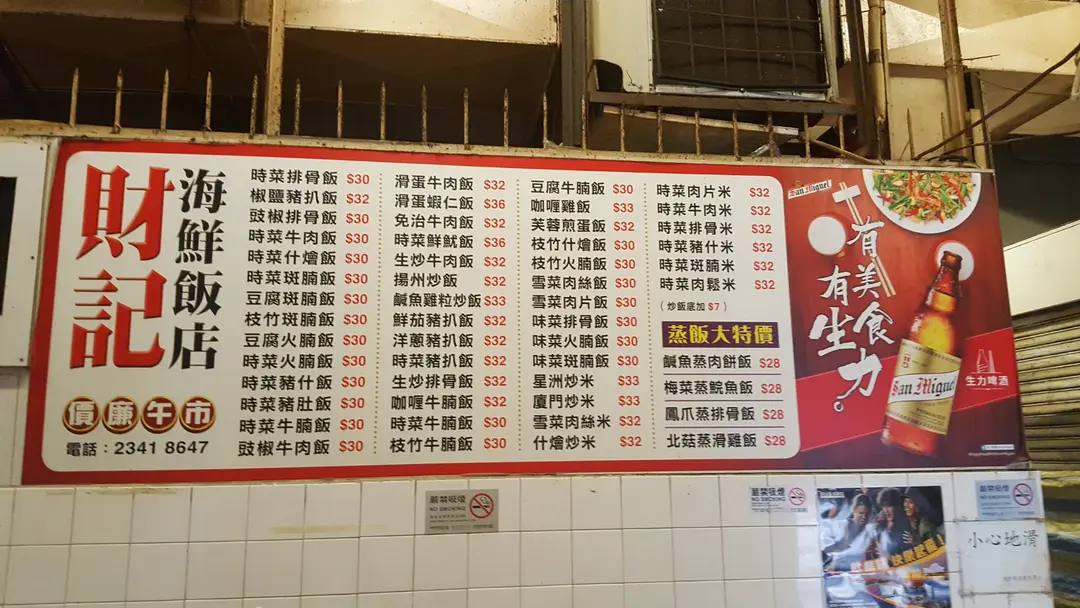 財記
海鮮飯店
價廉午市
電話：2341 8647
時菜排骨飯 $30
椒鹽豬扒飯 $32
豉椒排骨飯 $30
時菜牛肉飯 $30
時菜什燴飯 $30
時菜斑腩飯 $30
豆腐斑腩飯 $30
枝竹斑腩飯 $30
豆腐火腩飯 $30
時菜火腩飯 $30
時菜豬什飯 $30
時菜豬肚飯 $30
時菜牛腩飯 $30
豉椒牛肉飯 $30
滑蛋牛肉飯 $32
滑蛋蝦仁飯 $36
免治牛肉飯 $32
時菜鮮魷飯 $36
生炒牛肉飯 $32
揚州炒飯 $32
鹹魚雞粒炒飯 $33
鮮茄豬扒飯 $32
洋蔥豬扒飯 $32
時菜豬扒飯 $32
生炒排骨飯 $32
咖喱牛腩飯 $32
時菜牛腩飯 $30
枝竹牛腩飯 $30
豆腐牛腩飯 $30
咖喱雞飯 $33
芙蓉煎蛋飯 $32
枝竹什燴飯 $30
枝竹火腩飯 $30
雪菜肉絲飯 $30
雪菜肉片飯 $30
味菜排骨飯 $30
味菜火腩飯 $30
味菜斑腩飯 $30
星洲炒米 $33
廈門炒米 $33
雪菜肉絲米 $32
什燴炒米 $32
時菜肉片米 $32
時菜牛肉米 $32
時菜排骨米 $32
時菜豬什米 $32
時菜斑腩米 $32
時菜肉鬆米 $32
（炒飯底加 $7）
蒸飯大特價
鹹魚蒸肉餅飯 $28
梅菜蒸鯇魚飯 $28
鳳爪蒸排骨飯 $28
北菇蒸滑雞飯 $28
San Miguel
有美食
有生力。
San Miguel
生力啤酒
嚴禁吸煙
NO SMOKING
嚴禁吸煙
NO SMOKING
嚴禁吸煙
NO SMOKING
小心地滑